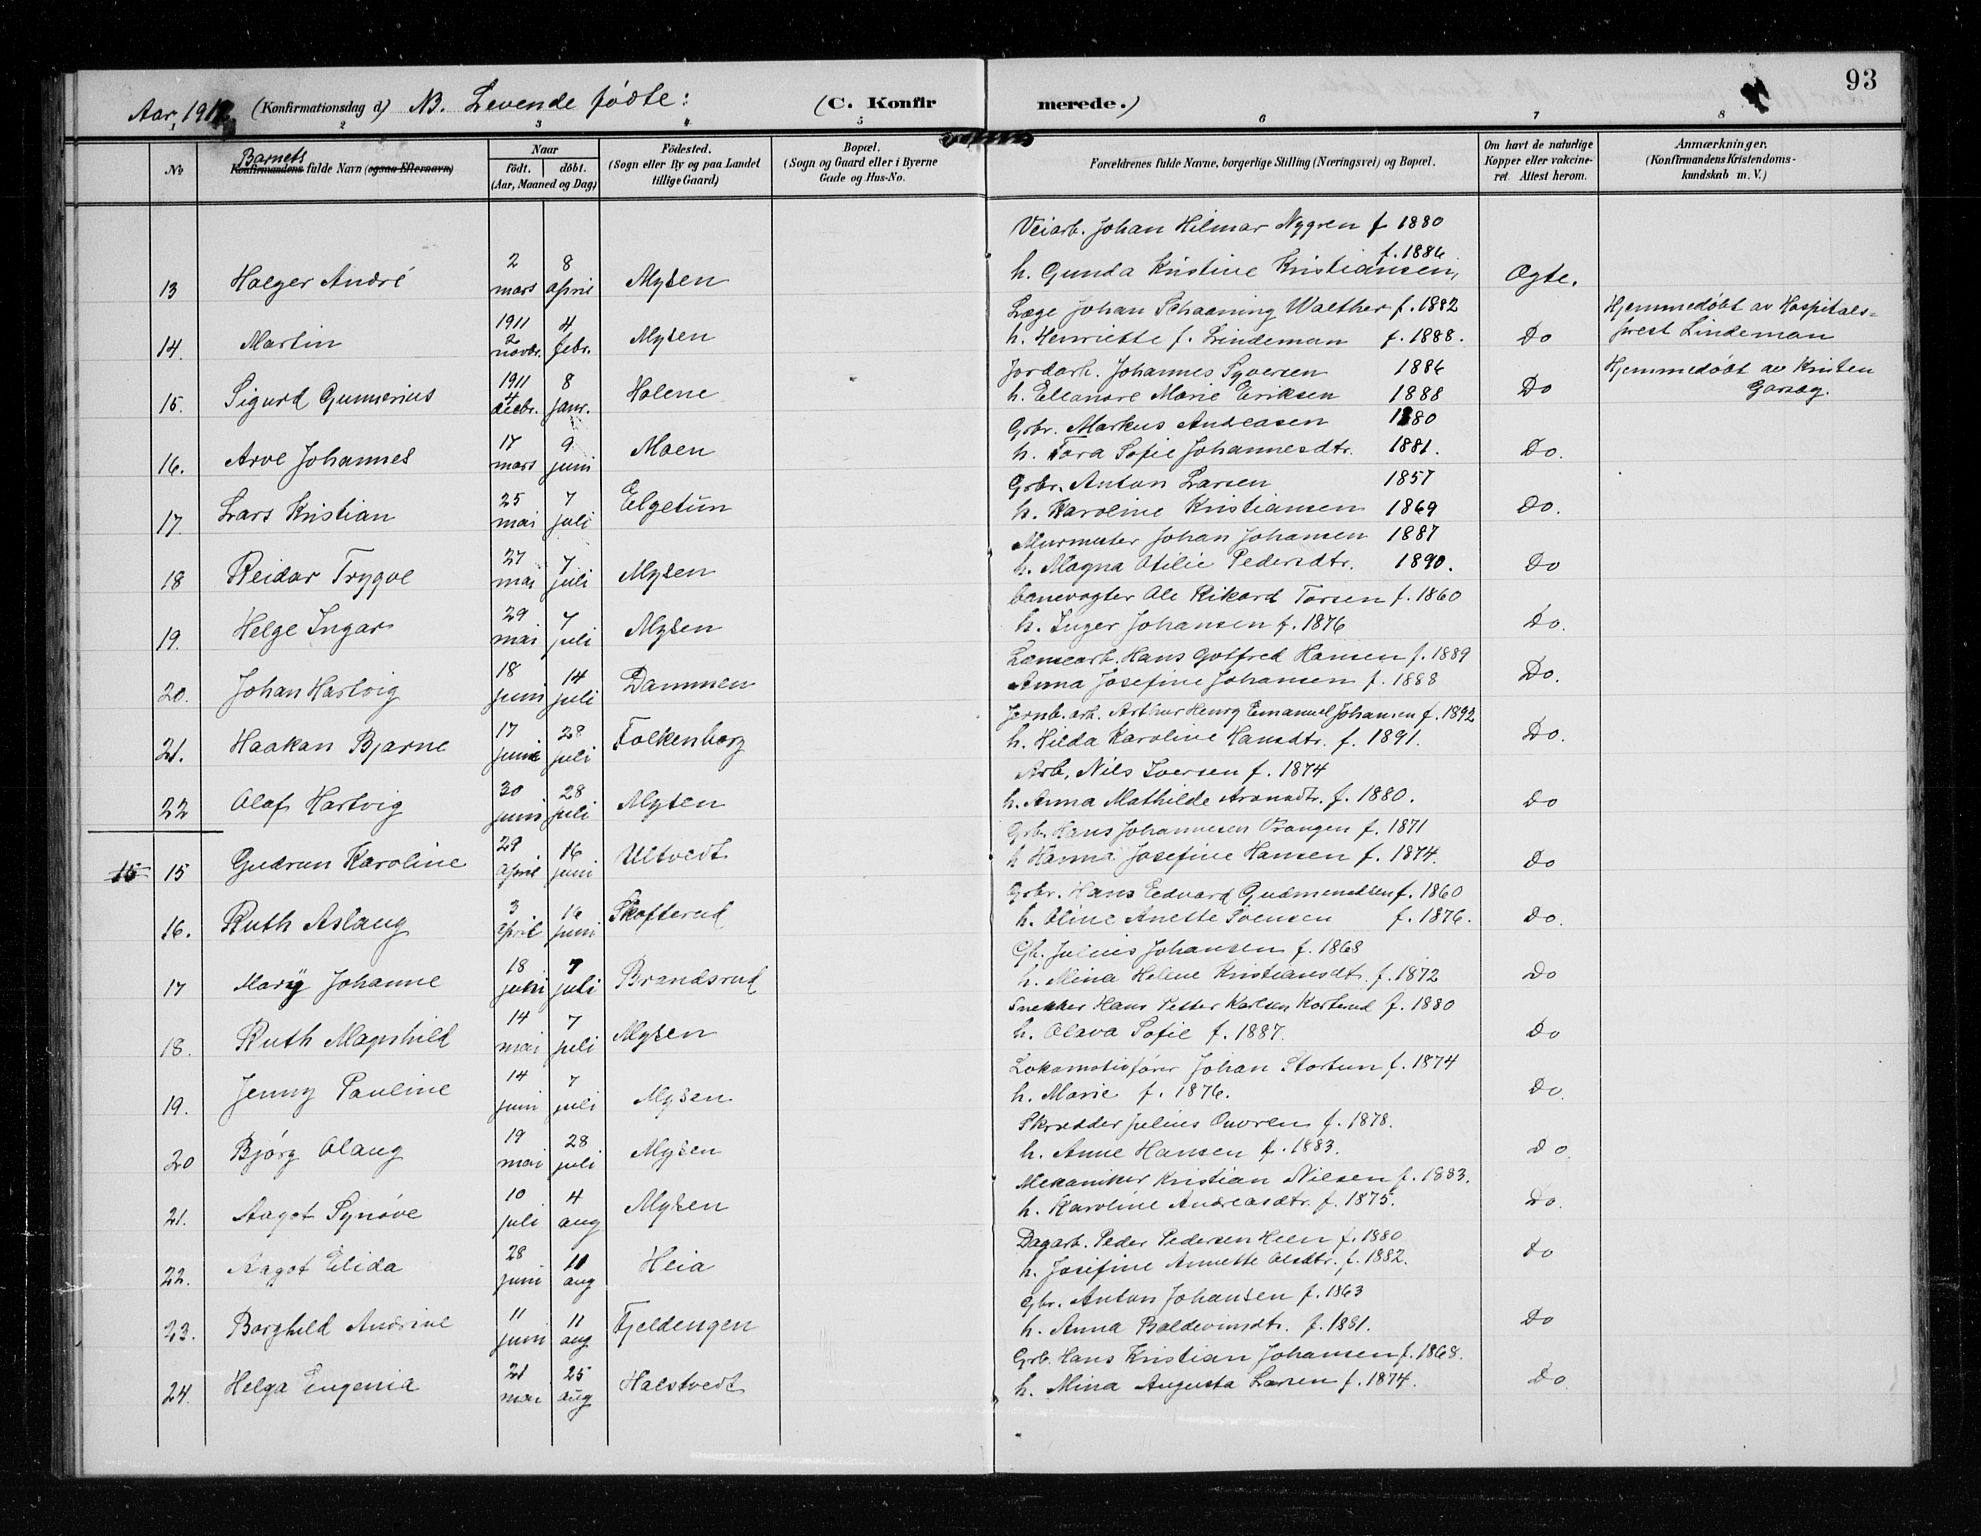 93
Aar, 1912. (Konfirmationsdag d) NB. Levende fødte: (C. Konfir merede.)
2 3 4 5 6 7 8
No Barnets Konfirmandens fulde Navn (ogsaa Efternavn) Naar født. døbt. (Aar, Maaned og Dag) Fødested. (Sogn eller By og paa Landet tillige Gaard) Bopæl. (Sogn og Gaard eller i Byerne Gade og Hus-No. Forældrenes fulde Navne, borgerlige Stilling (Næringsvei) og Bopæl. Om havt de naturlige Kopper eller vakcineret. Attest herom. Anmærkninger. (Konfirmandens Kristendomskundskab m. V.)
Veiarb. Johan Hilmar Nygren f 1880
13 Holger André 2 mars 8 april Mysen h. Gunda Kristine Kristiansen, f. 1886 Ægte.
Læge Johan Schaaning Walther f. 1882
14. Martin 1911 2 novbr. 4 febr. Mysen h. Henriette f. Lindeman f. 1888. Do Hjemmedøbt av Hospitals-prest Lindeman
Jordarb. Johannes Syversen 1886
15. Sigurd Gunnerius 1911 4 decbr. 8 janr. Holene h. Elleanore Marie Eriksen 1888 Do Hjemmedøbt av Kristen
Grbr. Markus Andreasen 1880
16. Arve Johannes 17 mars 9 juni Moen h. Tora Sofie Johannesdtr. 1881. Do.
Grbr. Anton Larsen 1857
17 Lars Kristian 25 mai 7 juli Elgetun h. Karoline Kristiansen 1869 Do.
Murmester Johan Johansen 1887
18 Reidar Trygve 27 mai 7 juli Mysen h. Magna Otilie Pedersdtr. 1890. Do
Banevogter Ole Rikard Torsen f. 1860
19. Helge Ingar 29 mai 7 juli Mysen h. Inger Johansen f. 1876 Do.
Lænsearb. Hans Gotfred Hansen f. 1889
20. Johan Hartvig 18 juni 14 juli Dammen Anna Josefine Johansen f. 1888 Do.
Jernb. arb. Arthur Henry Emanuel Johansen f. 1892
21. Haakon Bjarne 17 juni 28 juli Folkenborg h. Hilda Karoline Hansdtr. f. 1891. Do.
Arb. Nils Iversen f. 1874
22 Olaf Hartvig 30 juni 28 juli Mysen h. Anna Mathilde Aronsdtr. f. 1880. Do
Grb. Hans Johannesen f. 1871
15 15 Gudrun Karoline 29 april 16 juni Ultvedt h Hanna Josefine Hansen f. 1874. Do
Grbr. Hans Edvard Gudmundsen f. 1860
16. Ruth Aslaug 3 april 16 juni Skofterud h. Oline Anette Svensen f. 1876. Do.
Gb. Julius Johansen f. 1868
17 Mary Johanne 18 juni 7 juli Brandsrud h. Mina Helene Kristiansdt. f. 1872 Do
Snekker Hans Petter Karlsen Korterud f. 1880
18. Ruth Magnhild 14 mai 7 juli Mysen h. Olava Sofie f. 1887. Do
Lokomotivfører Johan Stortun f. 1874
19. Jenny Pauline 14 juni 7 juli Mysen h. Marie f. 1876. Do.
Skrædder Julius f. 1878.
20 Bjørg Olaug 19 mai 28 juli Mysen h. Anne Hansen f. 1883. Do.
Mekaniker Kristian Nilsen f. 1883.
21. Aagot Synøve 10 juli 4 aug Mysen h. Karoline Andreasdtr. f. 1875. Do.
Dagarb. Peder Pedersen Heen f. 1880
22. Aagot Elida 28 juni 11 aug Heia h. Josefine Annette Olsdtr. f. 1882. Do
Gbr. Anton Johansen f. 1863
23. Borghild Andrine 11 juni 11 aug Fjeldengen h. Anna Baldevinsdtr. f. 1881. Do
Grb. Hans Kristian Johansen f. 1868.
24. Helga Eugenia 21 mai 25 aug Halstvedt h. Mina Augusta Larsen f. 1874. Do.